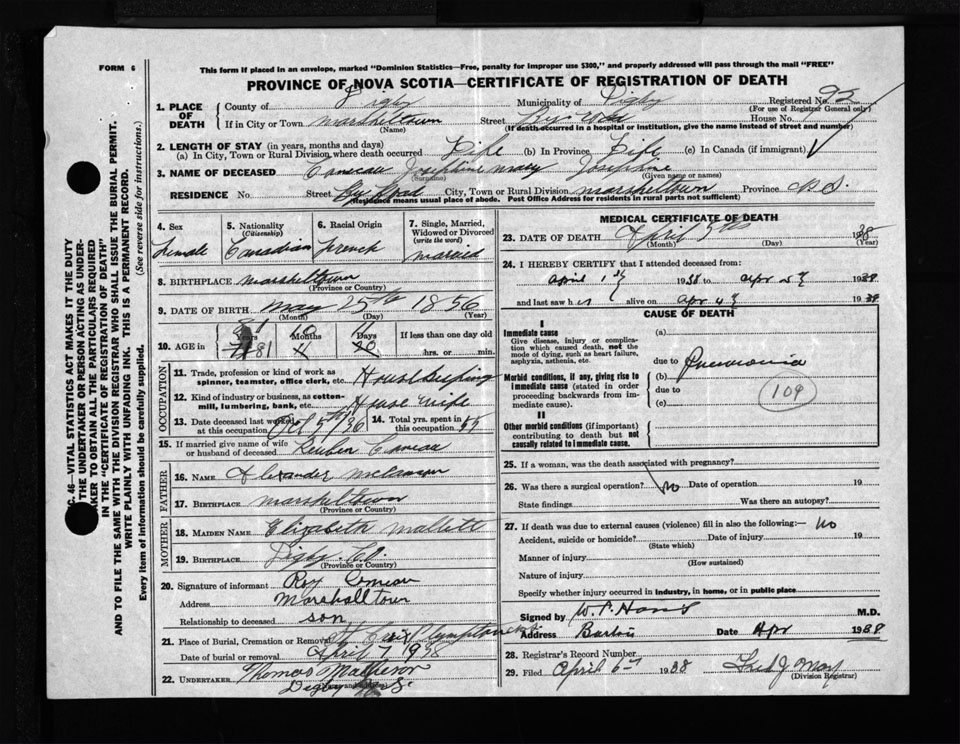 FORM 6
This form if placed in an envelope, marked "Dominion Statistics—Free, penalty for improper use $300," and properly addressed will pass through the mail "FREE"
PROVINCE OF NOVA SCOTIA—CERTIFICATE OF REGISTRATION OF DEATH
1. PLACE OF DEATH
County of Digby Municipality of Digby Registered No. 92
(For use of Registrar General only)
If in City or Town Marshelltown Street House No.
(Name) (If death occurred in a hospital or institution, give the name instead of street and number)
2. LENGTH OF STAY (in years, months and days)
(a) In City, Town or Rural Division where death occurred Life (b) In Province Life (c) In Canada (if immigrant)
3. NAME OF DECEASED Comeau Josephine Mary Josephine
(Surname) (Given name or names)
RESIDENCE No. Street City, Town or Rural Division Marsheltown Province N.S.
(Residence means usual place of abode. Post Office Address for residents in rural parts not sufficient)
4. Sex
Female
5. Nationality
(Citizenship)
Canadian
6. Racial Origin
French
7. Single, Married, Widowed or Divorced
(write the word)
married
8. BIRTHPLACE Marsheltown
(Province or Country)
9. DATE OF BIRTH May 25th 1856
(Month) (Day) (Year)
10. AGE in
Years Months Days If less than one day old
81 11
hrs. or min.
OCCUPATION
11. Trade, profession or kind of work as spinner, teamster, office clerk, etc. House Keeping
12. Kind of industry or business, as cotton-mill, lumbering, bank, etc. House Wife
13. Date deceased last worked at this occupation Oct 5th/36
14. Total yrs. spent in this occupation 55
15. If married give name of wife or husband of deceased Reuben Comeau
FATHER
16. NAME Alexander
17. BIRTHPLACE Marsheltown
MOTHER
18. MAIDEN NAME Elizabeth Mallett
19. BIRTHPLACE Digby Co
(Province or Country)
20. Signature of informant Roy Comeau
Address Marshalltown
Relationship to deceased son
21. Place of Burial, Cremation or Removal Plympton
Date of burial or removal April 7 1938
22. UNDERTAKER Thomas
Digby N.S.
MEDICAL CERTIFICATE OF DEATH
23. DATE OF DEATH April 5th 1938
(Month) (Day) (Year)
24. I HEREBY CERTIFY that I attended deceased from:
April 1st 1938 to Apr 5th 1938
and last saw her alive on Apr 4th 1938
CAUSE OF DEATH
I
Immediate cause
Give disease, injury or complication which caused death, not the mode of dying, such as heart failure, asphyxia, asthenia, etc.
(a)
due to
Morbid conditions, if any, giving rise to immediate cause (stated in order proceeding backwards from immediate cause).
(b) Pneumonia
due to
(c)
109
II
Other morbid conditions (if important) contributing to death but not causally related to immediate cause.
25. If a woman, was the death associated with pregnancy?
26. Was there a surgical operation? No Date of operation 19
State findings Was there an autopsy?
27. If death was due to external causes (violence) fill in also the following:— No
Accident, suicide or homicide? Date of injury 19
(State which)
Manner of injury
(How sustained)
Nature of injury
Specify whether injury occurred in industry, in home, or in public place
Signed by M.D.
Address Barton Date Apr 1938
28. Registrar's Record Number
29. Filed April 6th 1938 Fred J. May
(Division Registrar)
C. 46—VITAL STATISTICS ACT MAKES IT THE DUTY
THE UNDERTAKER OR PERSON ACTING AS UNDER-
AKER TO OBTAIN ALL THE PARTICULARS REQUIRED
IN THE "CERTIFICATE OF REGISTRATION OF DEATH"
AND TO FILE THE SAME WITH THE DIVISION REGISTRAR WHO SHALL ISSUE THE BURIAL PERMIT.
WRITE PLAINLY WITH UNFADING INK. THIS IS A PERMANENT RECORD.
Every item of information should be carefully supplied. (See reverse side for instructions.)